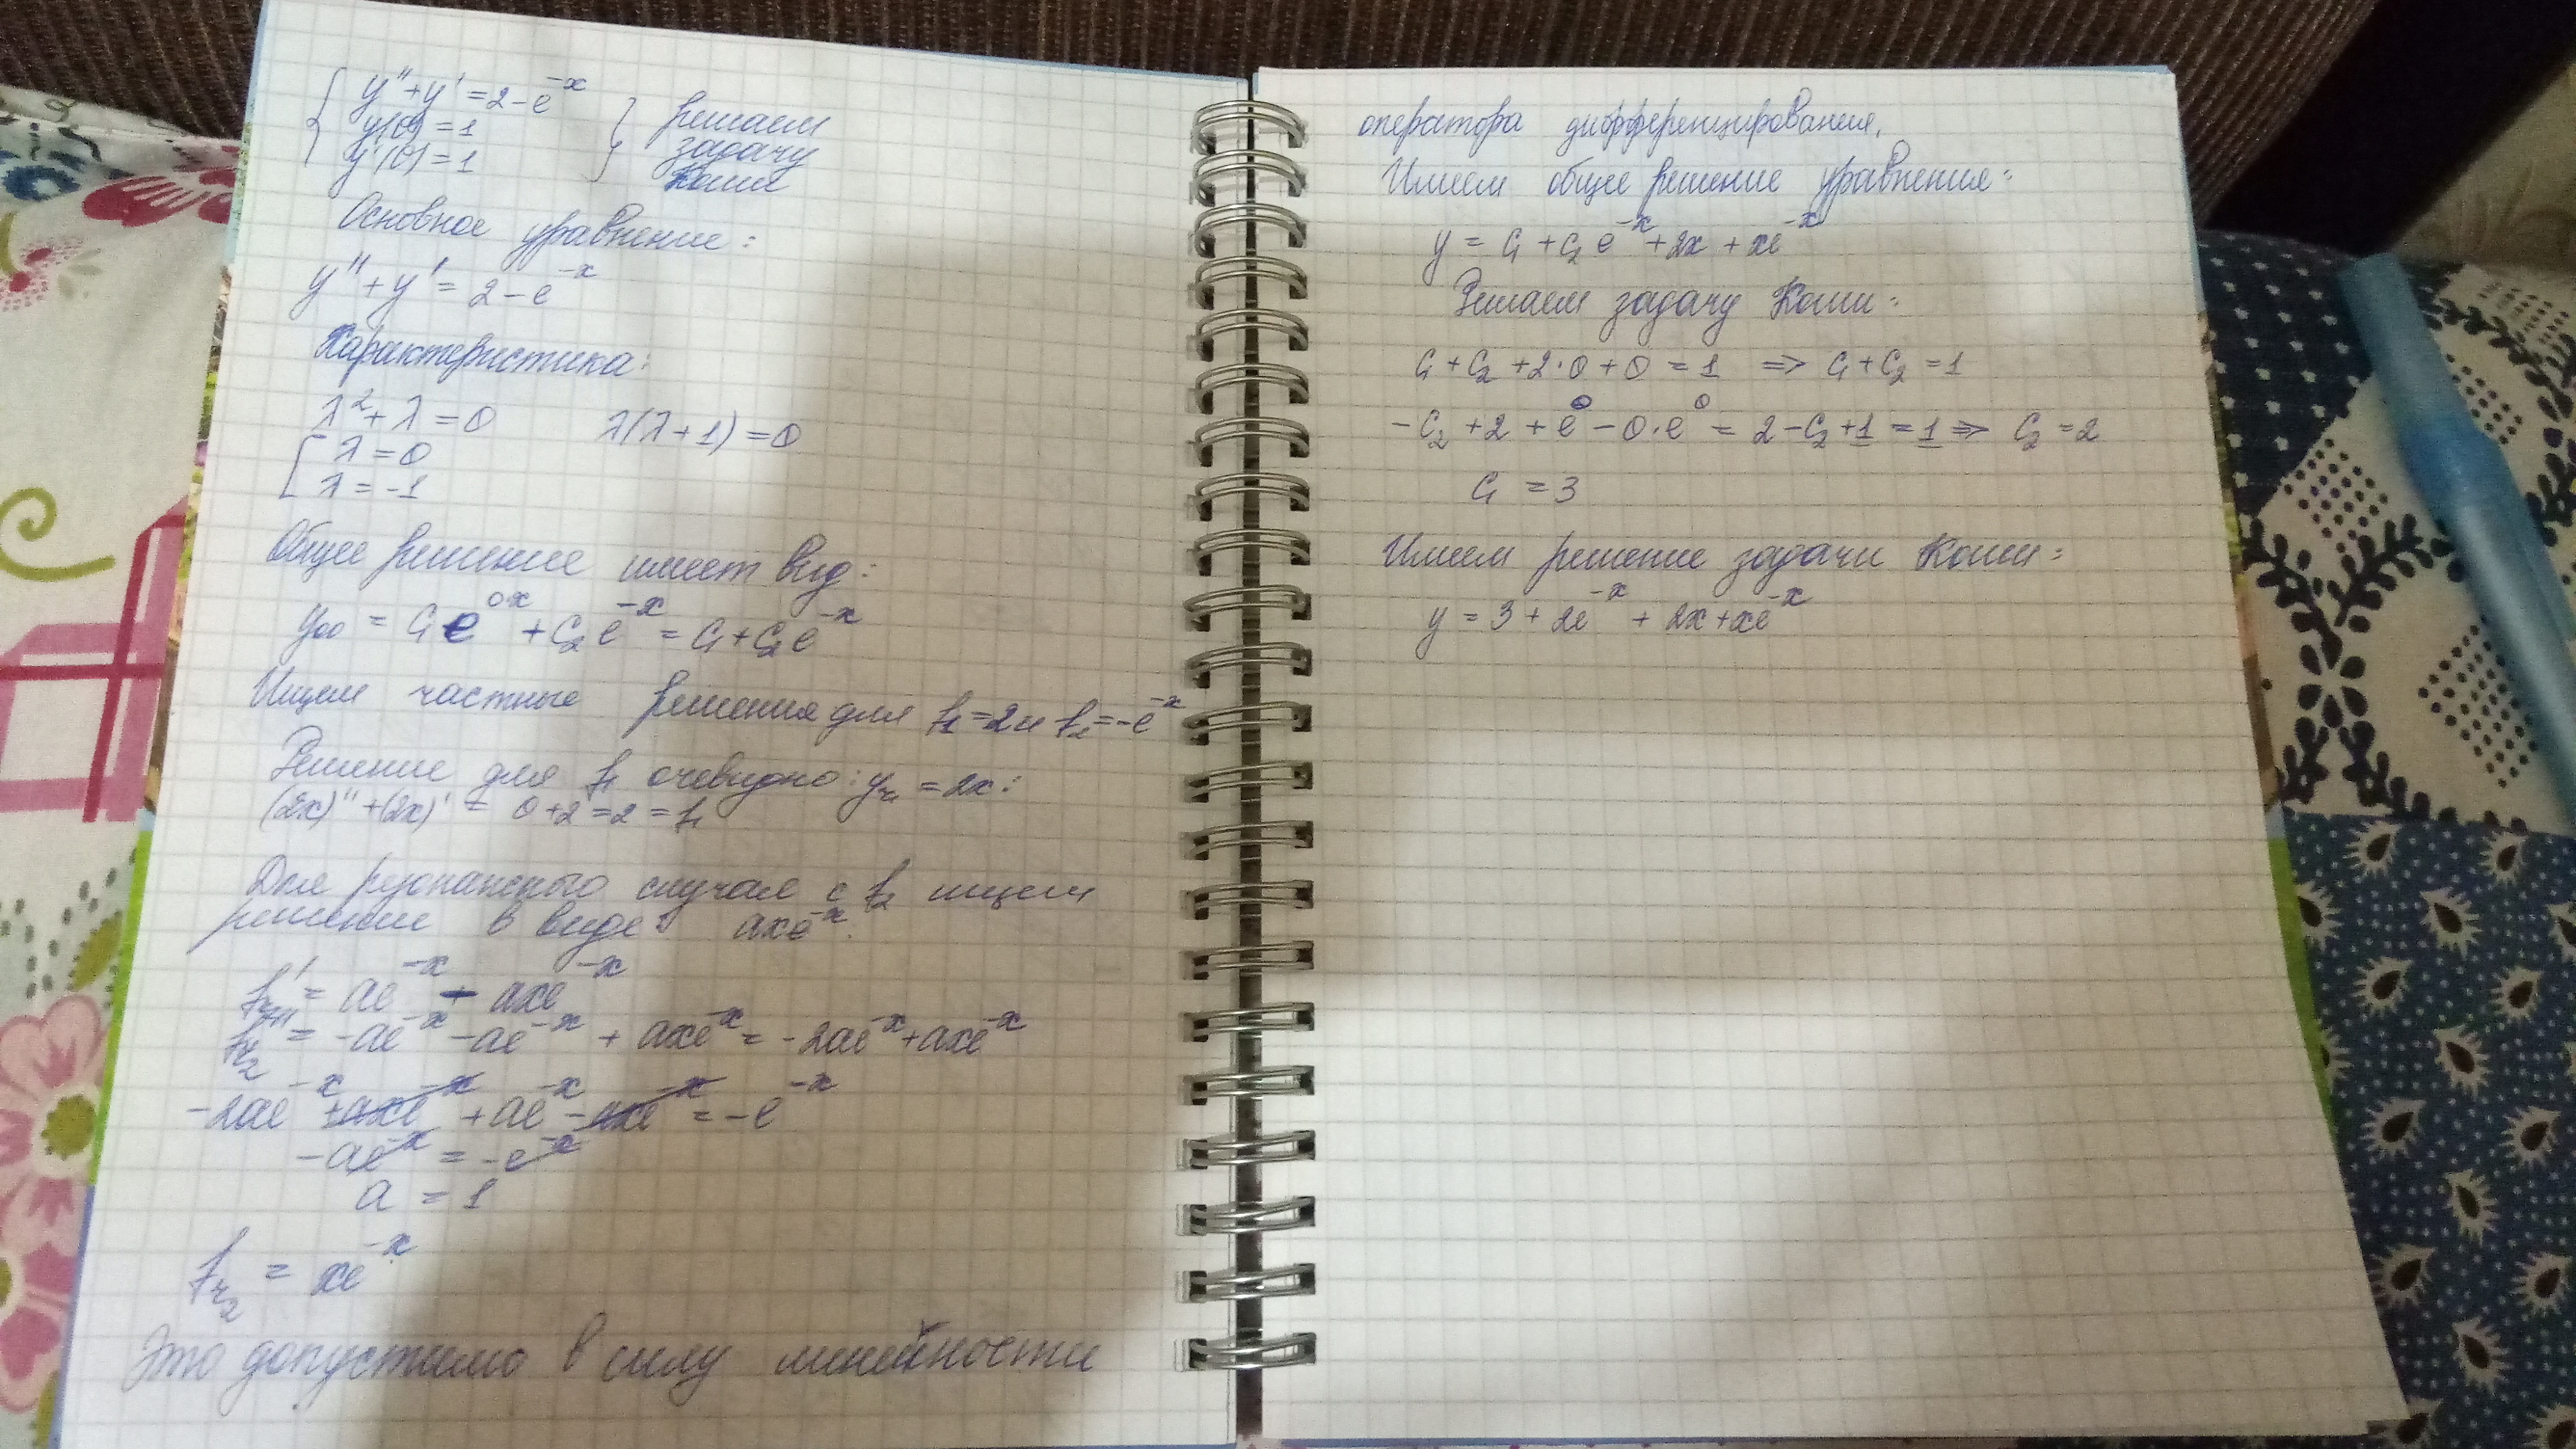 y'' + y' = 2 - e^{-x}
y(0) = 1
y'(0) = 1
решаем
задачу
Коши
Основное уравнение:
y'' + y' = 2 - e^{-x}
Характеристика:
λ² + λ = 0 λ(λ + 1) = 0
λ = 0
λ = -1
Общее решение имеет вид:
y_{оо} = C₁e^{0·x} + C₂e^{-x} = C₁ + C₂e^{-x}
Ищем частные решения для f₁ = 2 и f₂ = -e^{-x}
Решение для f₁ очевидно: y_{ч₁} = 2x:
(2x)'' + (2x)' = 0 + 2 = 2 = f₁
Для резонансного случая с f₂ ищем
решение в виде axe^{-x}.
f_{ч₂}' = ae^{-x} - axe^{-x}
f_{ч₂}'' = -ae^{-x} - ae^{-x} + axe^{-x} = -2ae^{-x} + axe^{-x}
-2ae^{-x} + axe^{-x} + ae^{-x} - axe^{-x} = -e^{-x}
-ae^{-x} = -e^{-x}
a = 1
f_{ч₂} = xe^{-x}
Это допустимо в силу линейности
оператора дифференцирования.
Имеем общее решение уравнения:
y = C₁ + C₂e^{-x} + 2x + xe^{-x}
Решаем задачу Коши:
C₁ + C₂ + 2·0 + 0 = 1 => C₁ + C₂ = 1
-C₂ + 2 + e^0 - 0·e^0 = 2 - C₂ + 1 = 1 => C₂ = 2
C₁ = 3
Имеем решение задачи Коши:
y = 3 + 2e^{-x} + 2x + xe^{-x}